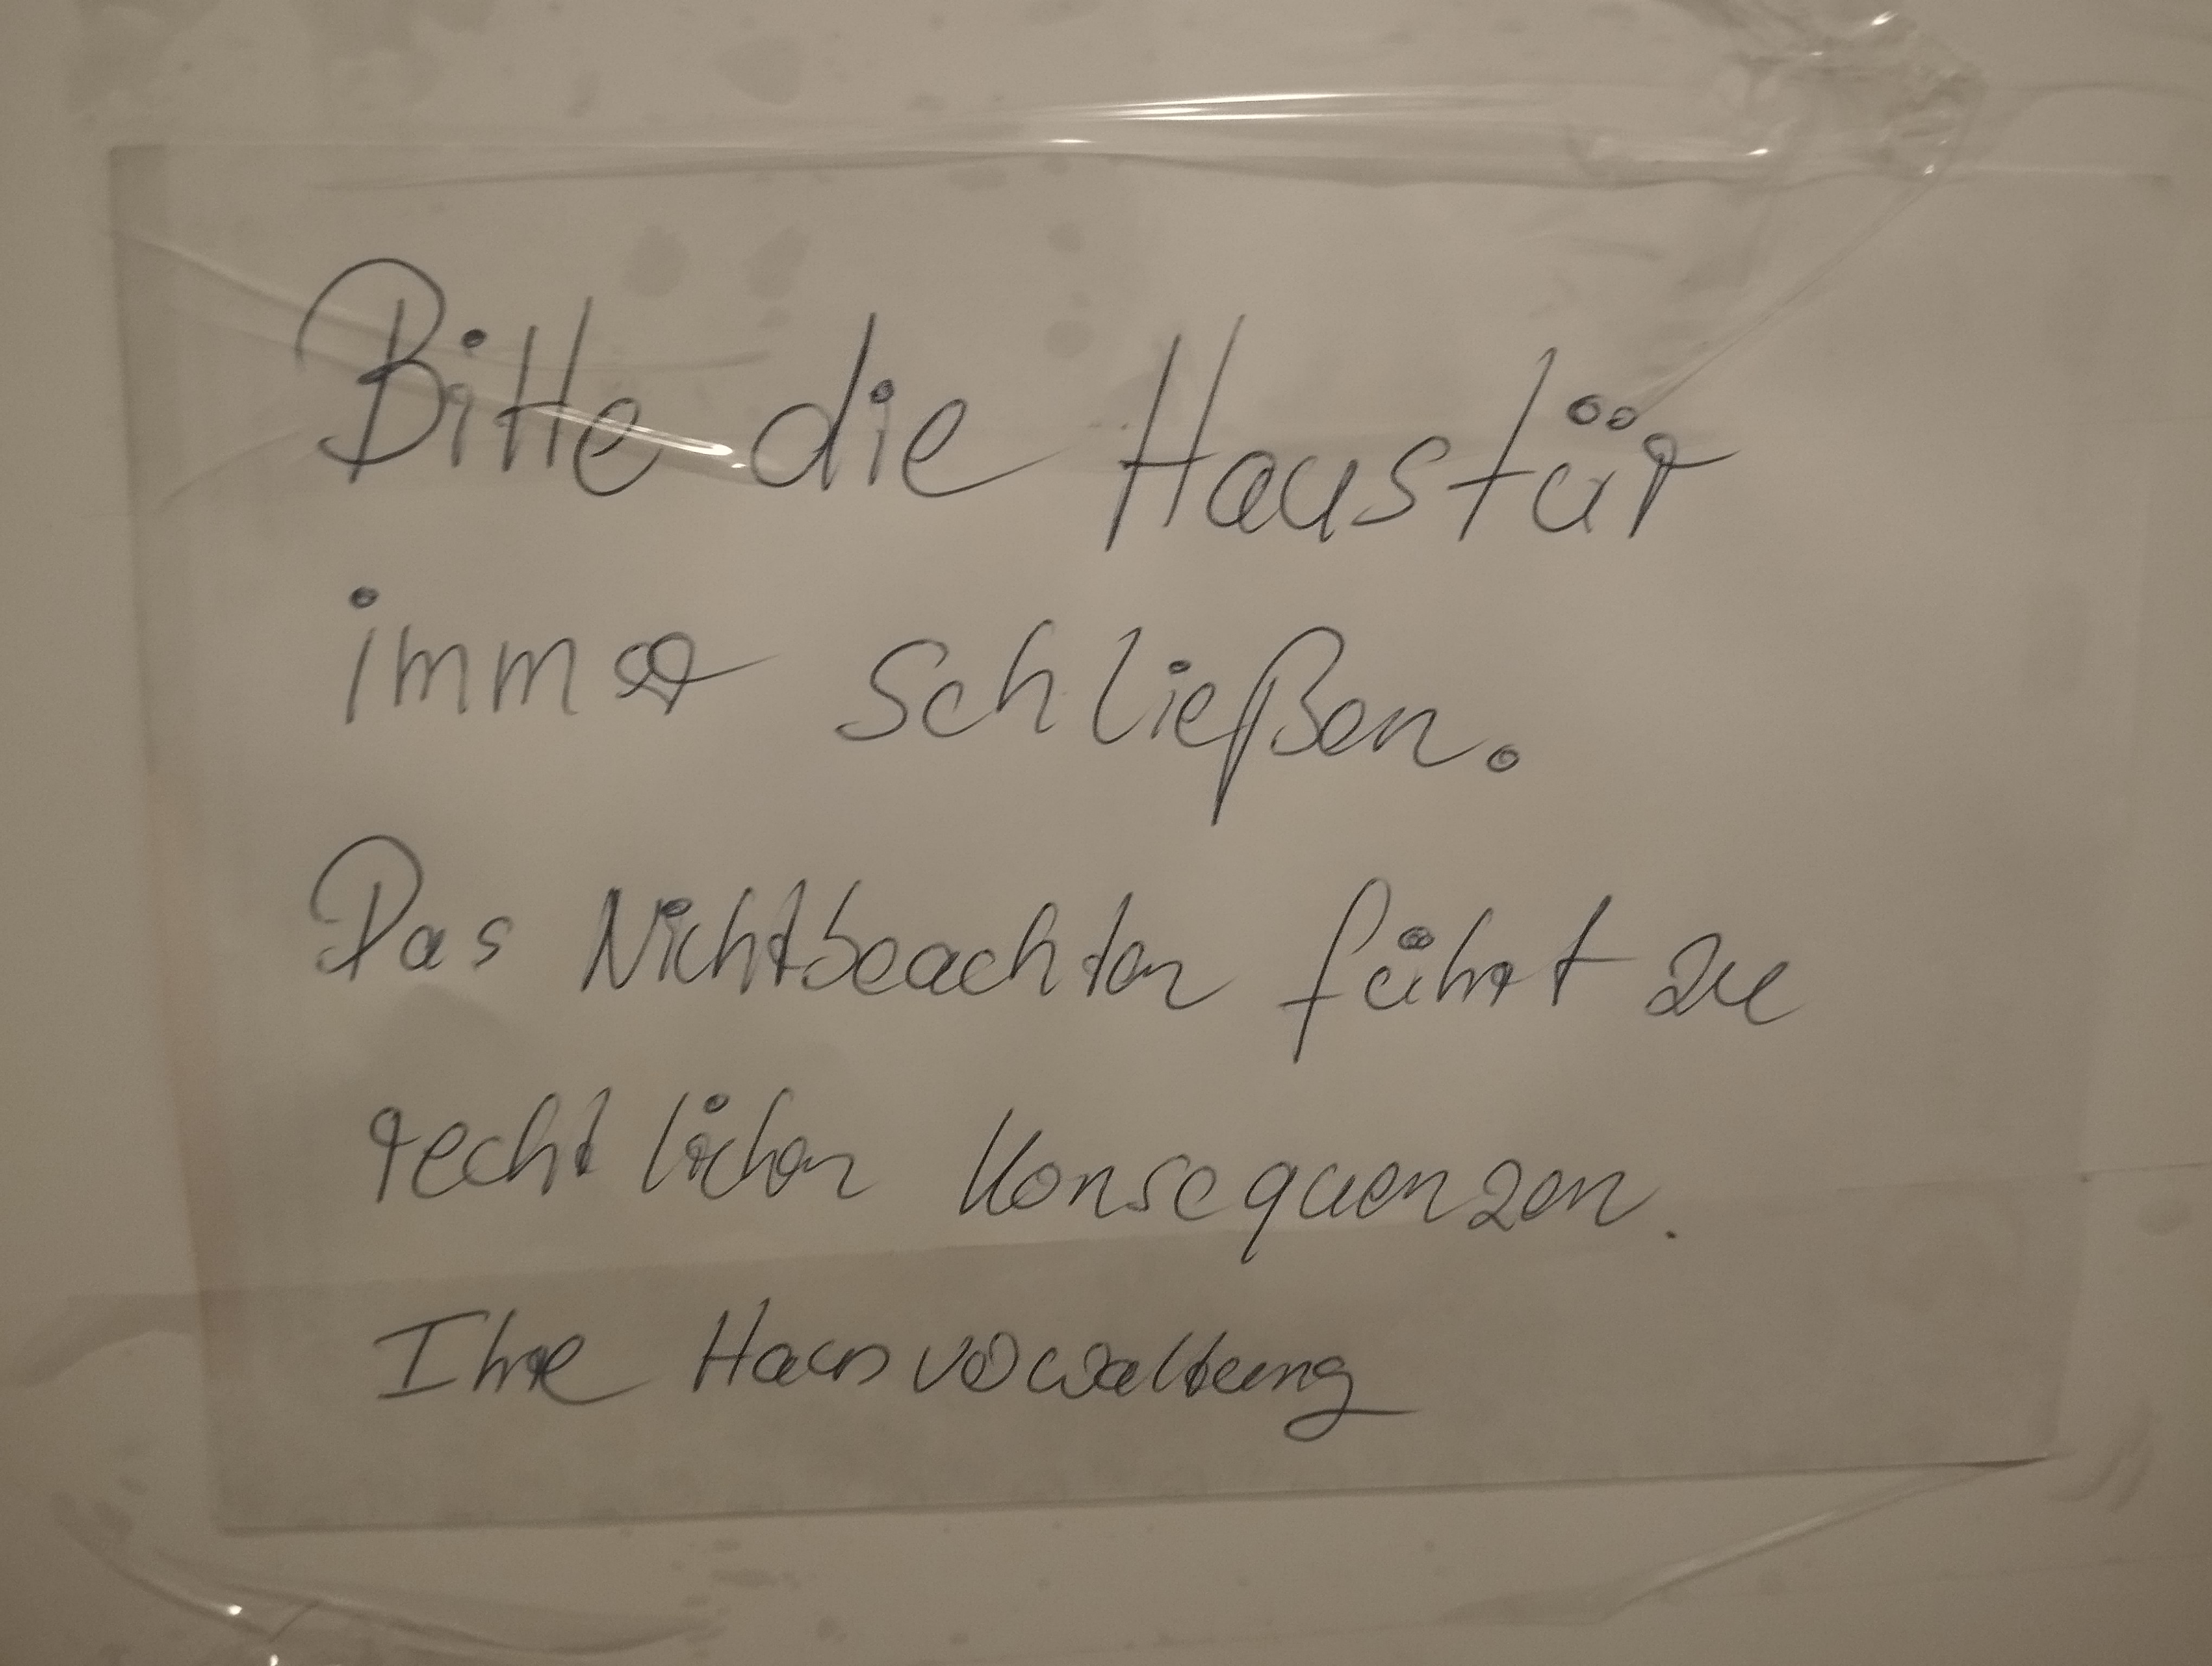 Bitte die Haustür
immer schließen.
Das Nichtbeachten führt zu
rechtlichen Konsequenzen.
Ihre Hausverwaltung